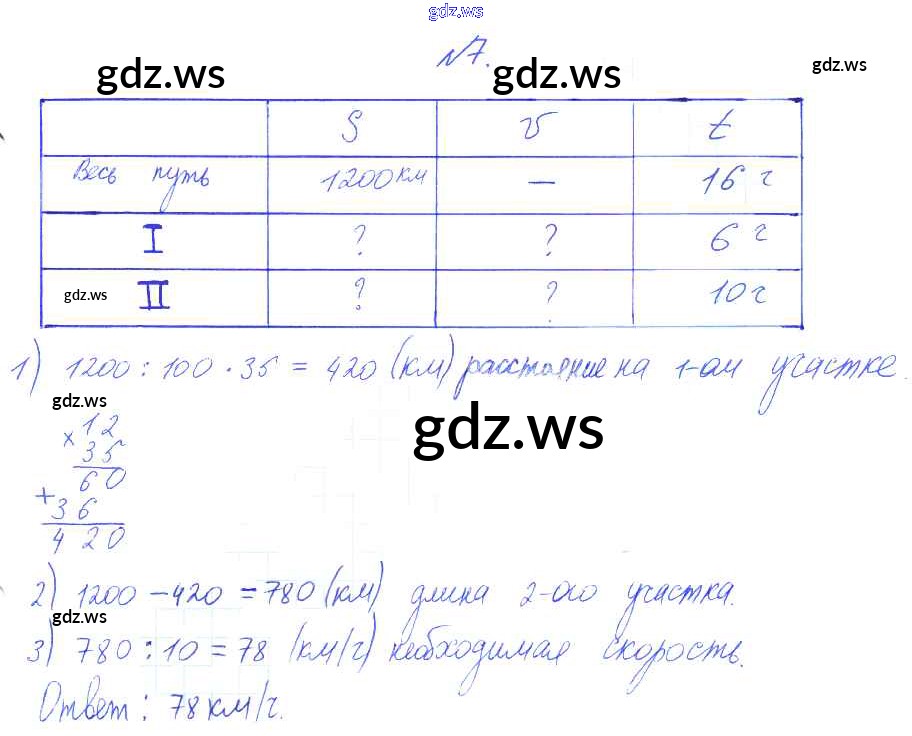 gdz.ws
№7.
gdz.ws gdz.ws gdz.ws
S v t
Весь путь 1200 км — 16 ч
I ? ? 6 ч
gdz.ws II ? ? 10 ч
1) 1200 : 100 · 35 = 420 (км) расстояние на 1-ом участке.
gdz.ws
gdz.ws
× 12
35
60
+ 36
420
2) 1200 - 420 = 780 (км) длина 2-ого участка.
gdz.ws
3) 780 : 10 = 78 (км/ч) необходимая скорость.
Ответ: 78 км/ч.